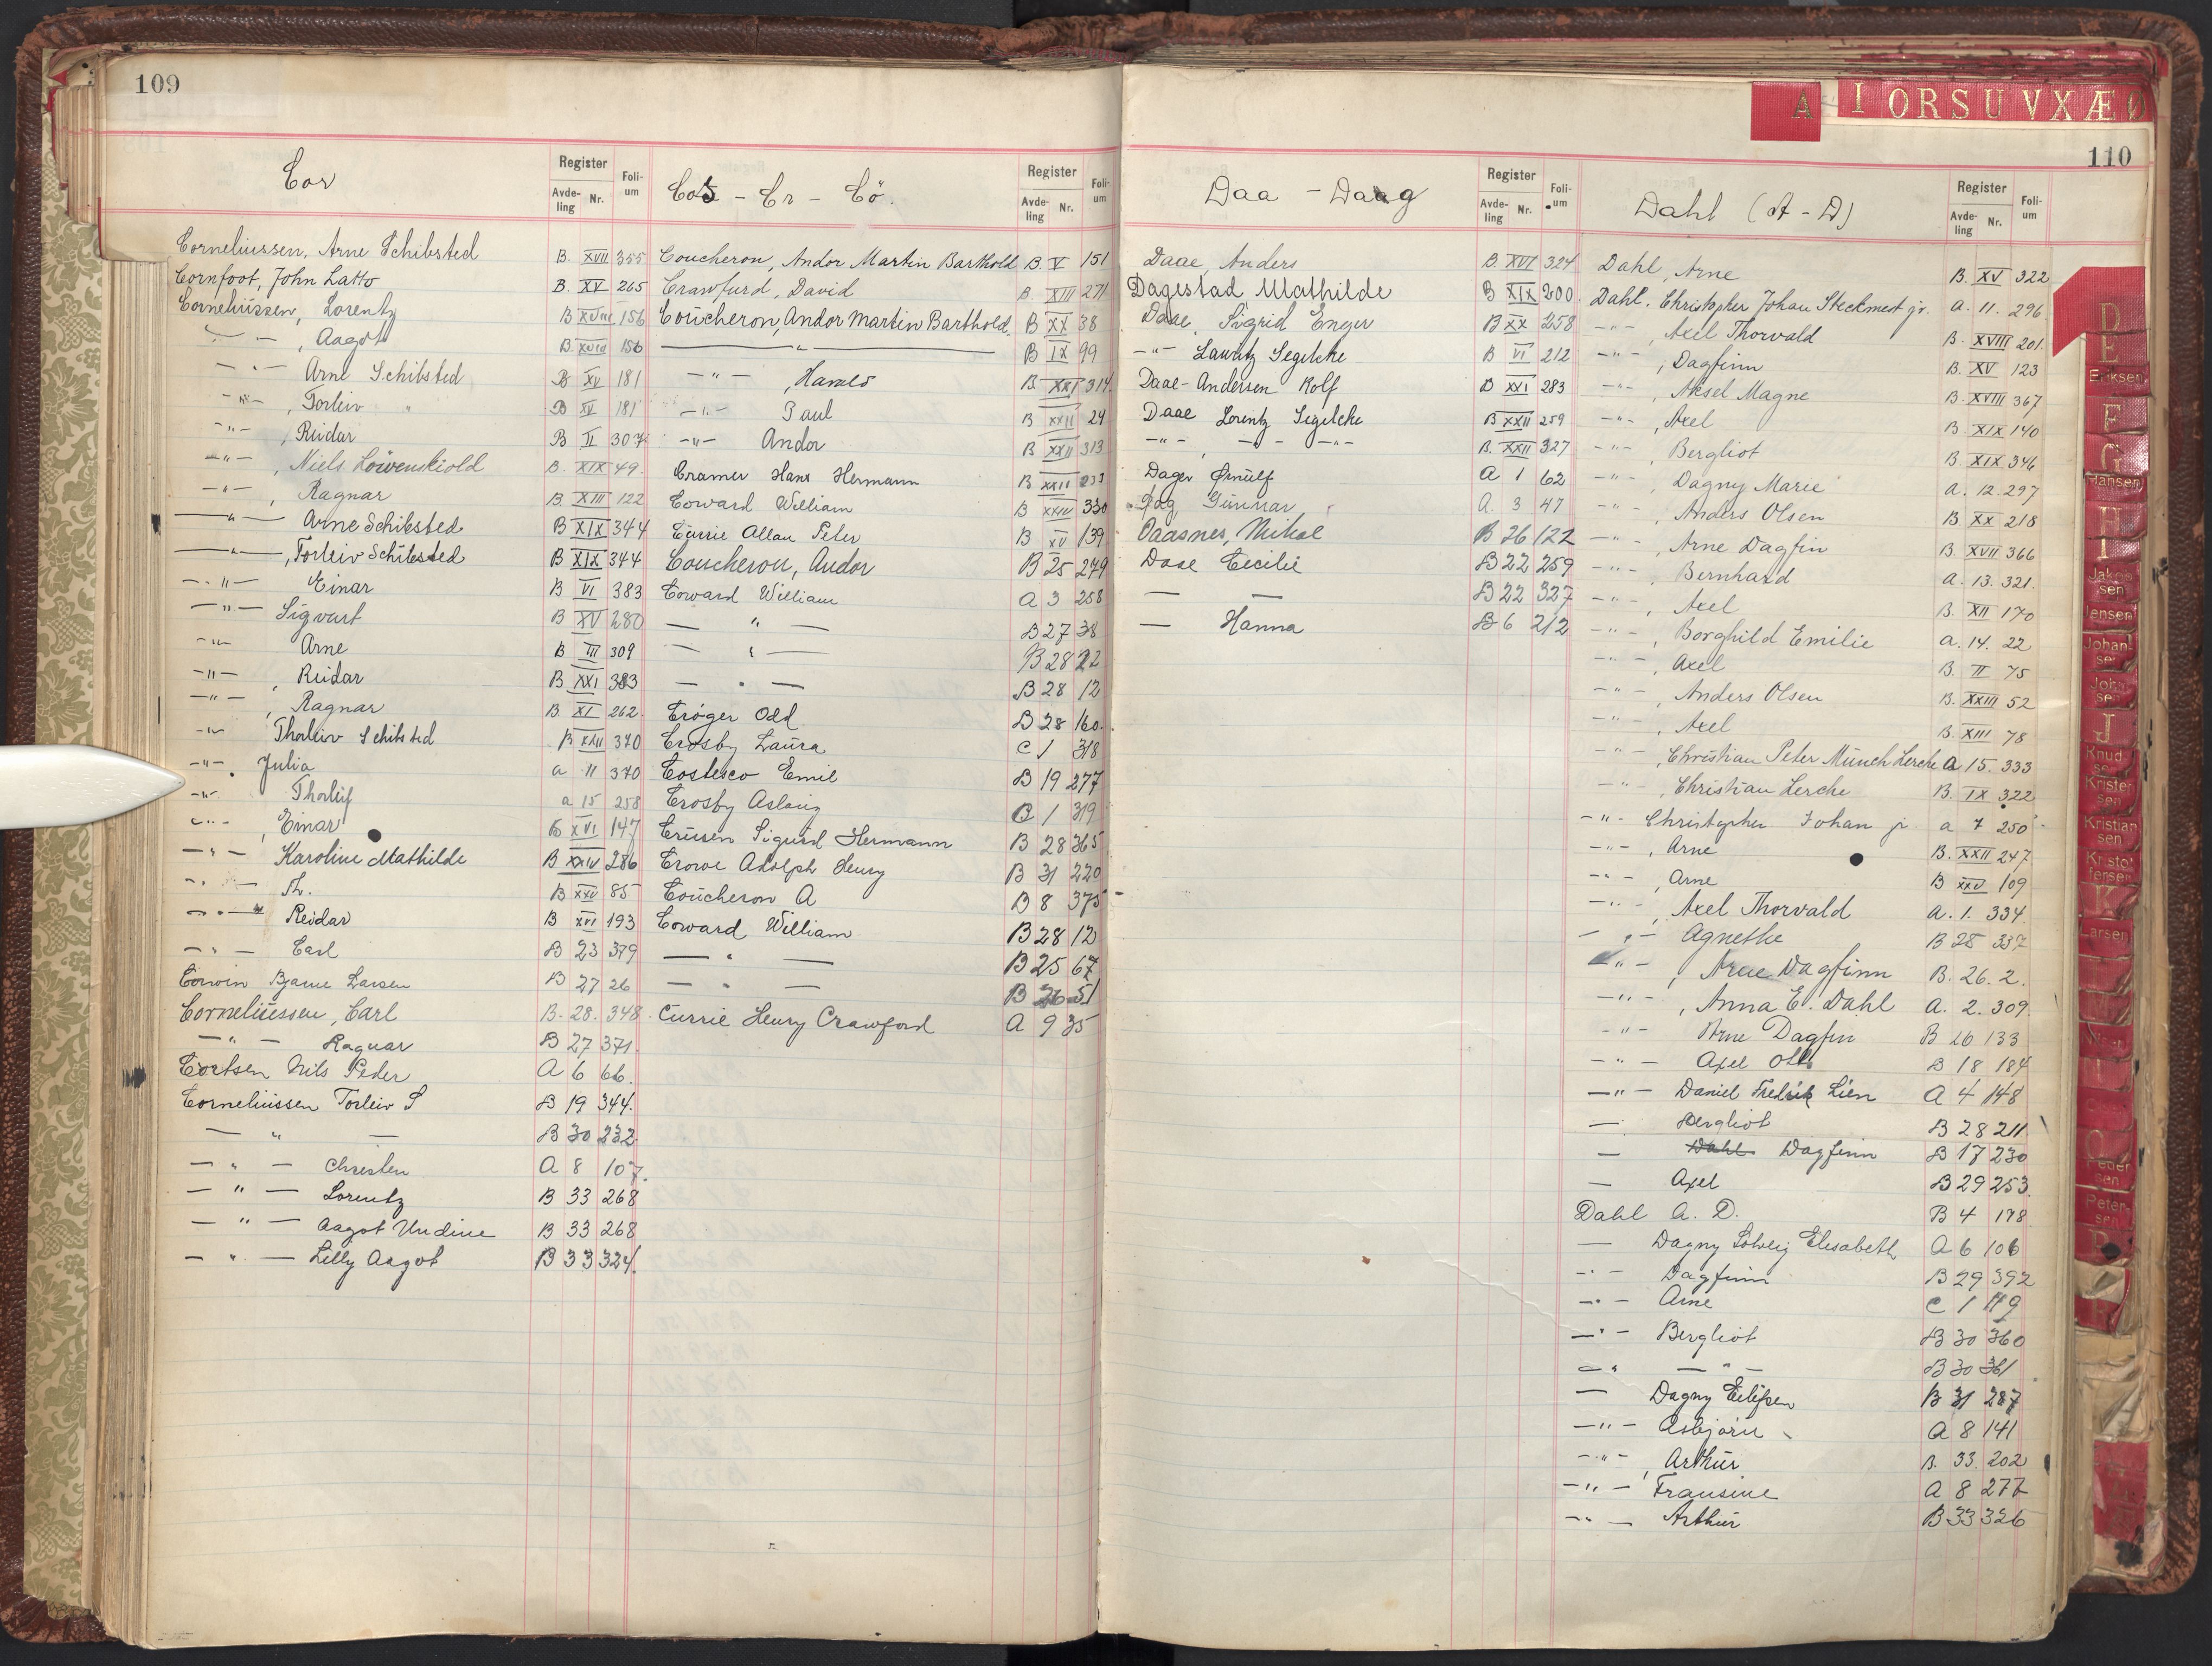 109
Cor
Register
Avde-ling Nr.
Foli-um
Corneliussen, Arne Schibsted B. XVII 355
Cornfoot, John Latto B. XV 265
Corneliussen, Lorentz B XVIII 156
— " — , Aagot B. XVIII 156
— " — Arne Schibsted B XV 181
— " — , Torleiv " B XV 181
— " — , Reidar B II 307
— " — , Niels Löwenskiold B. XIX 49
— " — , Ragnar B. XIII 122
— " — Arne Schibsted B XIX 344
— " — , Torleiv Schibsted B XIX 344
— " — Einar B VI 383
— " — Sigvart B XV 280
— " — Arne B III 309
— " — , Reidar B XXI 383
— " — , Ragnar B. XI 262
— " — Thorleiv Schibsted B XXII 370
— " — Julia a 11 370
— " — Thorleif a 15 258
— " — , Einar B XVI 147
— " — Karoline Mathilde B XXIV 286
— " — Th. B XXV 85
— " — Reidar B XVI 193
— " — Carl B 23 379
Corwin Bjarne Larsen B 27 26
Corneliussen, Carl B. 28. 348
— " — Ragnar B 27 371
Coetsen Nils Peder A 6 66.
Corneliussen Torleiv S B 19 344.
— " — B 30 232
— " — Christen A 8 107.
— " — Lorentz B 33 268
— " — Aagot Undine B 33 268
— " — Lilly Aagot B 33 324.
Cos - Cr - Cö.
Register
Avde-ling Nr.
Foli-um
Coucheron, Andor Martin Barthold B. V 151
Crawfurd, David B. XIII 271
Coucheron, Andor Martin Barthold. B XX 38
— " — B IX 99
— " — , Harald B. XXI 314
— " — Paul B XXII 24
— " — Andor B XXII 313
Cramer Hans Hermann B XXII 233
Coward William B XXIV 330
Currie Allan Peter B XV 139
Coucheron, Andor B 25 249
Coward William A 3 258
— " — B 27 38
— " — B 28 22
— " — B 28 12
Crøger Odd B 28 160.
Crosby Laura C 1 318
Costesco Emil B 19 277
Crosby Aslaug C 1 319
Crusen Sigurd Hermann B 28 365
Crowe Adolph Henry B 31 220
Coucheron A B 8 375
Coward William B 28 12
— " — B 25 67
— " — B 26 51
Currie Henry Crawford A 9 35
Daa - Daag
Register
Avde-ling Nr.
Foli-um
Daae, Anders B. XVI 324
Dagestad Mathilde B XIX 200.
Daae, Sigrid Enger B XX 258
— " — Lauritz Segelcke B VI 212
Daae-Andersen Rolf B XXI 283
Daae Lorentz Segelcke B XXII 259
— " — — " — B. XXII 327
Dager Ørnulf A 1 62
Dag, Gunnar A. 3 47
Daasnes, Mikal B 26 122
Daae Cecilie B 22 259
— — B 22 327
— Hanna B 6 212
A I O R S U V X Æ Ø
110
Dahl (A - D)
Register
Avde-ling Nr.
Foli-um
Dahl, Arne B. XV 322
Dahl. Christopher Johan Steckmest jr. a. 11. 296
— " — , Axel Thorvald B. XVIII 201.
— " — , Dagfinn B. XV 123
— " — , Aksel Magne B. XVIII 367
— " — , Axel B. XIX 140
— " — , Bergliot B. XIX 346
— " — , Dagny Marie a. 12. 297
— " — , Anders Olsen B. XX 218
— " — , Arne Dagfin B. XVII 366
— " — , Bernhard a. 13. 321.
— " — , Axel B. XII 170
— " — , Borghild Emilie a. 14. 22
— " — , Axel B. II 75
— " — , Anders Olsen B. XXIII 52
— " — , Axel B. XIII 78
— " — , Christian Peter Münch Lerche A 15. 333
— " — , Christian Lerche B. IX 322
— " — Christopher Johan jr. a 7 250
— " — , Arne B. XXII 247
— " — , Arne B XXV 109
— " — , Axel Thorvald A. 1. 334
— " — Agnethe B 28 337
— " — , Arne Dagfinn B. 26. 2.
— " — , Anna E. Dahl A. 2. 309.
— " — Arne Dagfin B 26 133
— " — Axel Otto B 18 184
— " — Daniel Fredrik Lien A 4 148
— Bergliot B 28 211
— Dahl Dagfinn B 17 230
— Axel B 29 253
Dahl A. D. B 4 198
— Dagny Solveig Elisabeth A 6 106
— " — Dagfinn B 29 392
— " — Arne C 1 119
— " — Bergliot B 30 360
— " — — " — B 30 361
— Dagny Eilifsen B 31 287
— " — Asbjørn A 8 141
— " — , Arthur B. 33. 202
— " — Fransine A 8 277
— " — Arthur B 33 326
D
E
Eriksen
F
G
Hansen
H
I
Jakobsen
Jensen
Johansen
J
Kristiansen
Kristoffersen
K
Larsen
Pedersen
Petersen